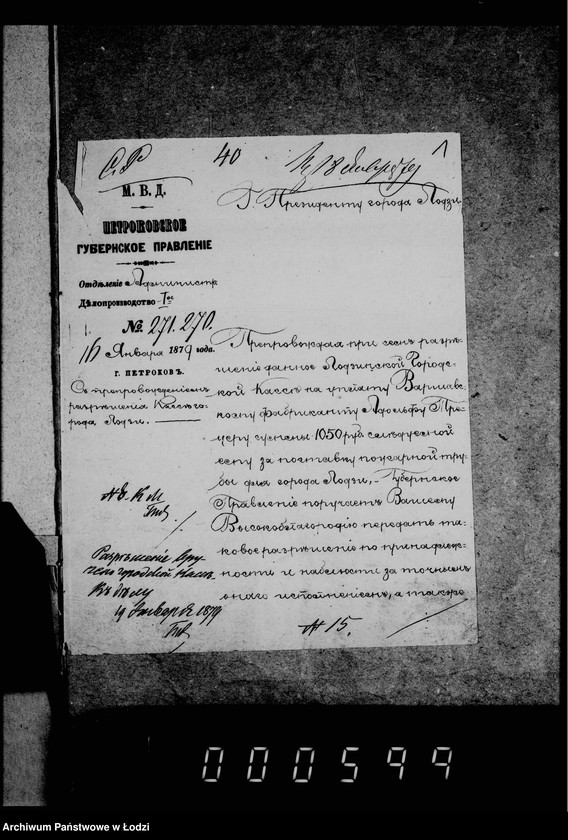 С.Р.
40
К 18 Января 79
1
М. В. Д.
ПЕТРОКОВСКОЕ
ГУБЕРНСКОЕ ПРАВЛЕНІЕ
Отдѣленіе Администр
Дѣлопроизводство I ое
№ 271.270.
16 Января 1879 года.
Г. ПЕТРОКОВЪ.
Съ препровожденіемъ
разрѣшенія Кассѣ го-
рода Лодзи.
Г. Президенту города Лодзи
Препровождая при семъ разрѣ-
шеніе данное Лодзинской Городс-
кой Кассѣ на уплату Варшавс-
кому фабриканту Адольфу Тро-
церу суммы 1050 руб слѣдуемой
ему за поставку пожарной тру-
бы для города Лодзи, – Губернское
Правленіе поручаетъ Вашему
Высокоблагородію передать та-
ковое разрѣшеніе по принадлеж-
ности и наблюсти за точнымъ
онаго исполненіемъ, а также
Разрѣшеніе вру-
чено городской кассѣ
Къ дѣлу
19 Января 1879
№ 15.
000599
Archiwum Państwowe w Łodzi